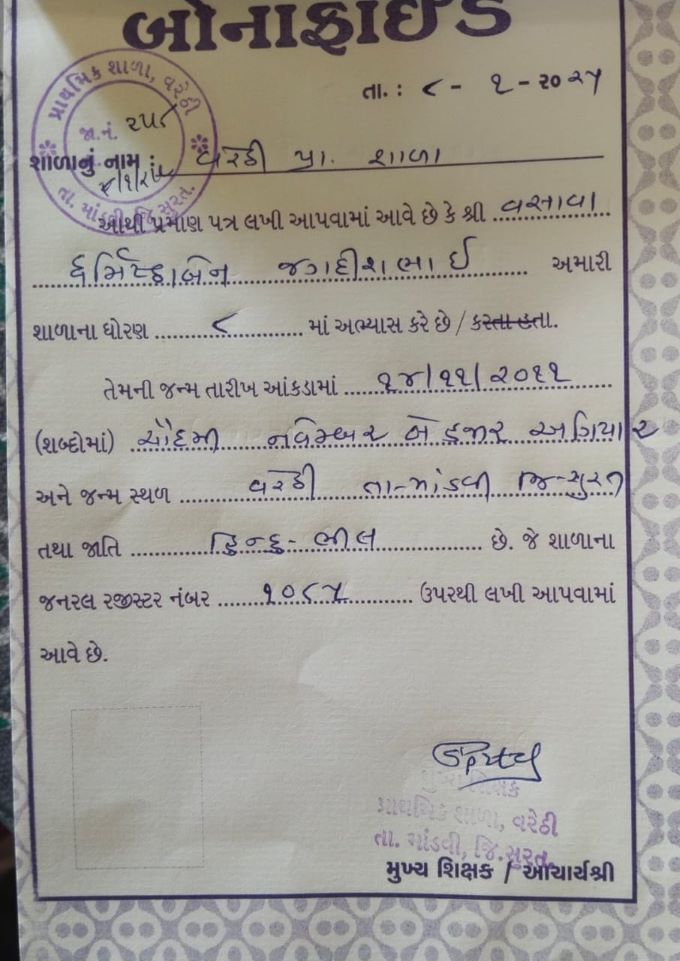 બોનાફાઈડ
પ્રાથમિક શાળા, વરેઠી
તા. માંડવી, જિ. સુરત.
જા.નં. ૨૫૮
તા. : ૮ - ૧ - ૨૦૨૫
શાળાનું નામ : વરેઠી પ્રા. શાળા
આથી પ્રમાણ પત્ર લખી આપવામાં આવે છે કે શ્રી વસાવા
ધર્મિષ્ઠાબેન જગદીશભાઈ અમારી
શાળાના ધોરણ ૮ માં અભ્યાસ કરે છે / કરતા હતા.
તેમની જન્મ તારીખ આંકડામાં ૧૪/૧૧/૨૦૧૧
(શબ્દોમાં) ચૌદમી નવેમ્બર બે હજાર અગિયાર
અને જન્મ સ્થળ વરેઠી તા-માંડવી જિ-સુરત
તથા જાતિ હિન્દુ - ભીલ છે. જે શાળાના
જનરલ રજીસ્ટર નંબર ૧૦૮૫ ઉપરથી લખી આપવામાં
આવે છે.
મુખ્ય શિક્ષક
પ્રાથમિક શાળા, વરેઠી
તા. માંડવી, જિ.સુરત.
મુખ્ય શિક્ષક / આચાર્યશ્રી